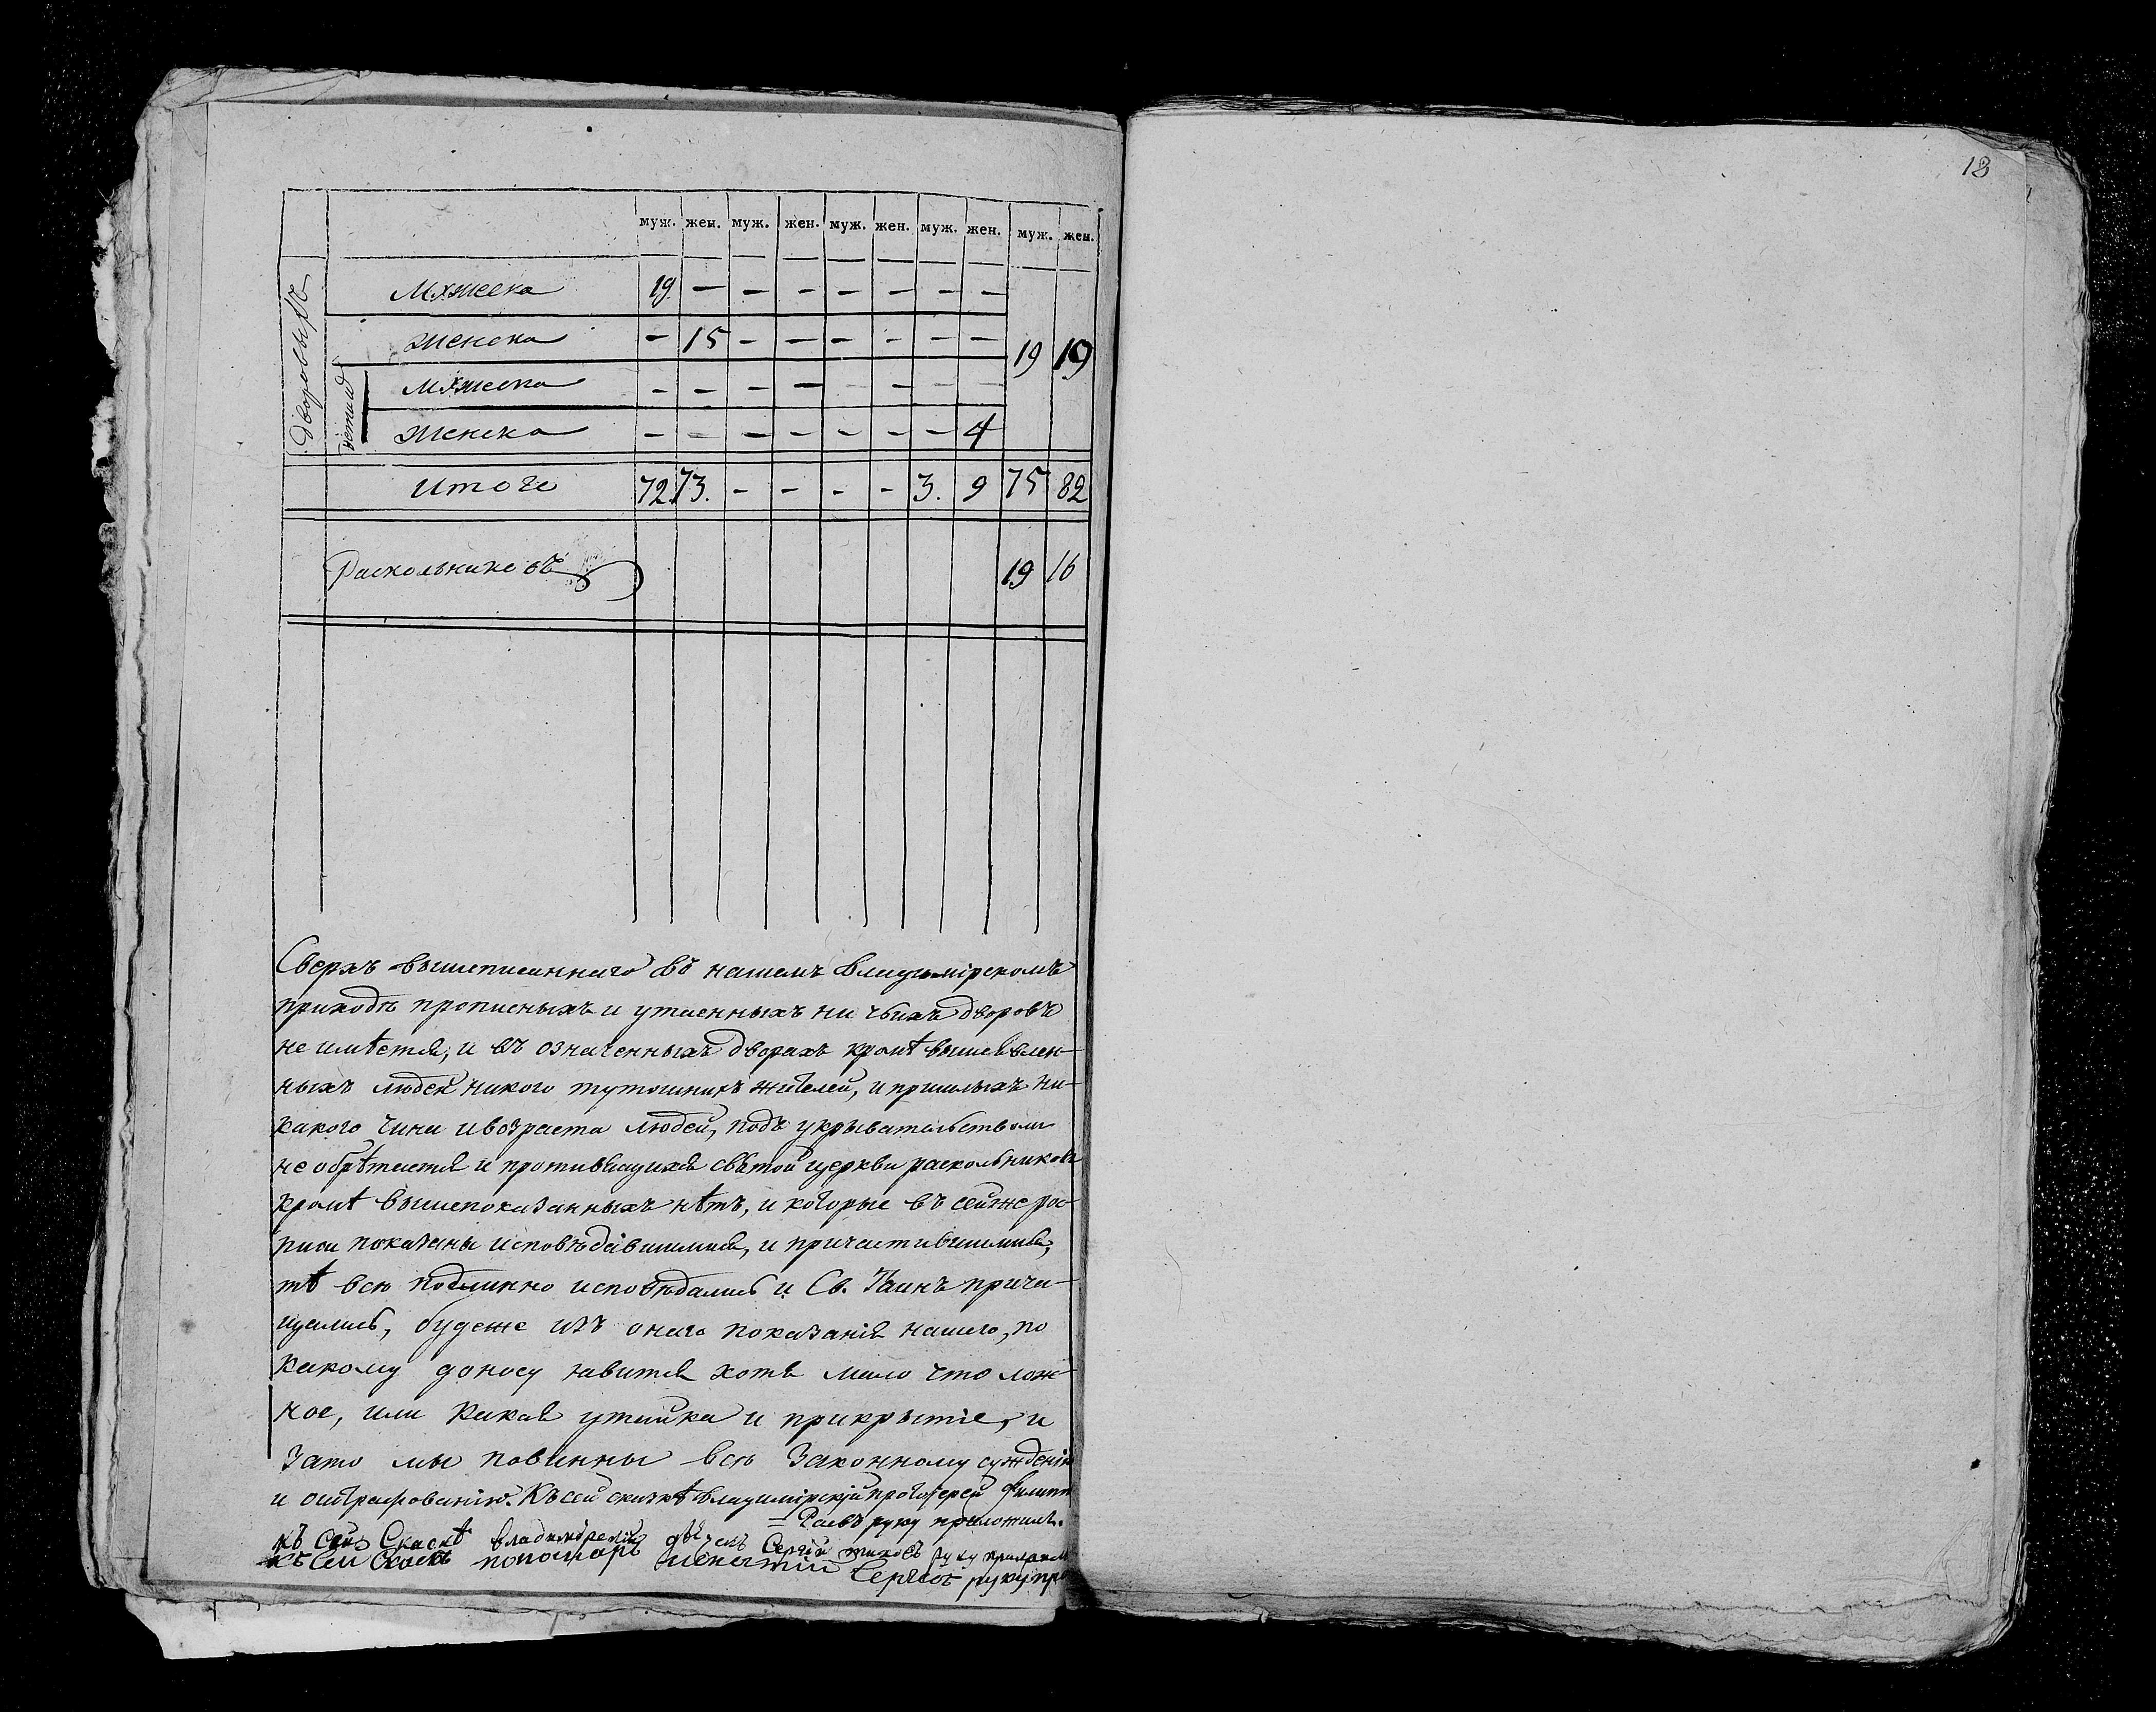 13
муж. жен. муж. жен. муж. жен. муж. жен. муж. жен.
дворовыхъ
Мꙋжеска 19. — — — — — — —
Женска — 15 — — — — — — 19 19
детей
Мꙋжеска — — — — — — — —
Женска — — — — — — — 4
Итого 72. 73. — — — — 3. 9 75 82
Раскольниковъ 19 16
Сверхъ вышеписаннаго въ нашемъ владимірскомъ
приходѣ прописныхъ и утаенныхъ ни чьихъ дворовъ
не имѣется, и въ означенныхъ дворахъ кромѣ вышеявлен-
ныхъ людей никого тутошнихъ жителей, и пришлыхъ ни-
какого чина и возраста людей, подъ укрывательствомъ
не обрѣтается и противящихся святой церкви раскольниковъ
кромѣ вышепоказанныхъ нѣтъ, и которые въ сей же рос-
писи показаны исповѣдавшимися, и причастившимися,
тѣ всю подлинно исповѣдались и Св. Таинъ прича-
щались, будеже изъ онаго показанія нашего, по
какому доносу явится хотя мало что лож-
ное, или какая утайка и прикрытіе, и
зато мы повинны всю законному сужденію
и оштрафованію. Къ сей сказкѣ владимірскій протоіерей Филиппъ
Раевъ руку приложилъ.
къ сей Скаскѣ владимирскій дьячекъ Сергій руку
къ сей Скаскѣ пономарь Сергѣевъ руку при